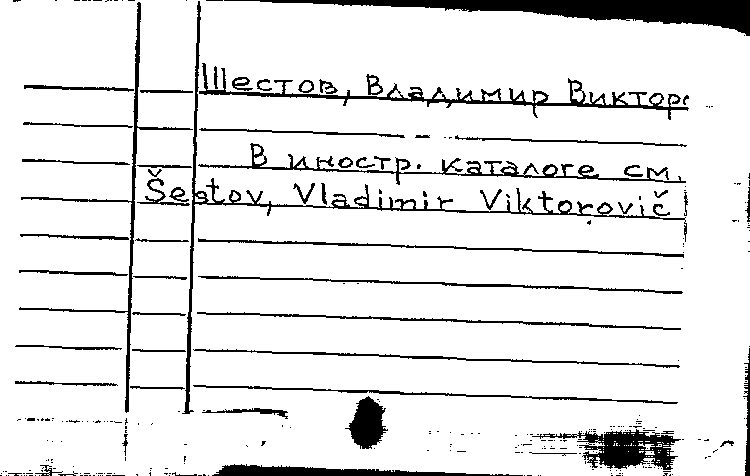 Шестов, Владимир Виктор
В иностр. каталоге см.
Šestov, Vladimir Viktorovič